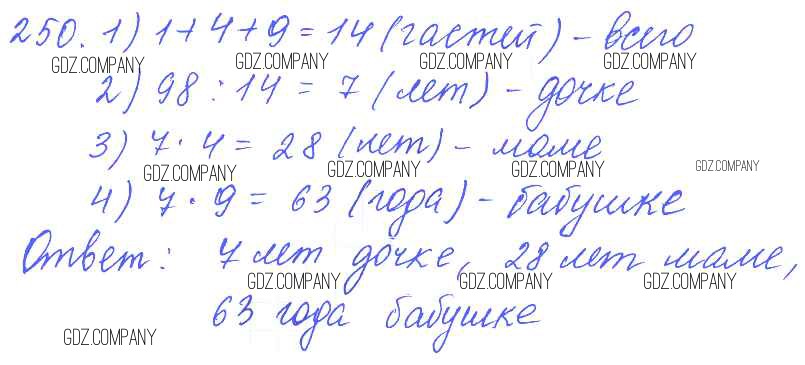 250. 1) 1+4+9=14 (частей) - всего
GDZ.COMPANY GDZ.COMPANY GDZ.COMPANY GDZ.COMPANY
2) 98 : 14 = 7 (лет) - дочке
3) 7 · 4 = 28 (лет) - маме
GDZ.COMPANY GDZ.COMPANY GDZ.COMPANY GDZ.COMPANY
4) 7 · 9 = 63 (года) - бабушке
Ответ: 7 лет дочке, 28 лет маме,
GDZ.COMPANY GDZ.COMPANY GDZ.COMPANY
63 года бабушке
GDZ.COMPANY